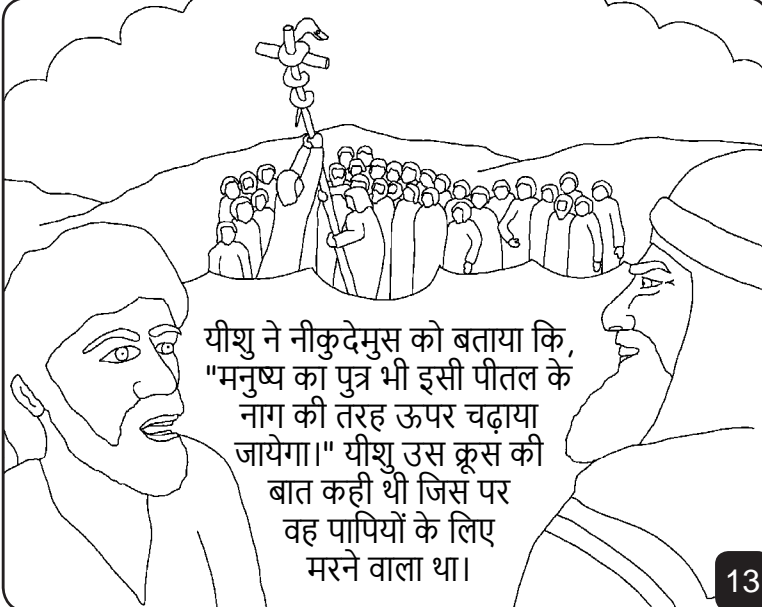 यीशु ने नीकुदेमुस को बताया कि,
"मनुष्य का पुत्र भी इसी पीतल के
नाग की तरह ऊपर चढ़ाया
जायेगा।" यीशु उस क्रूस की
बात कही थी जिस पर
वह पापियों के लिए
मरने वाला था।
13